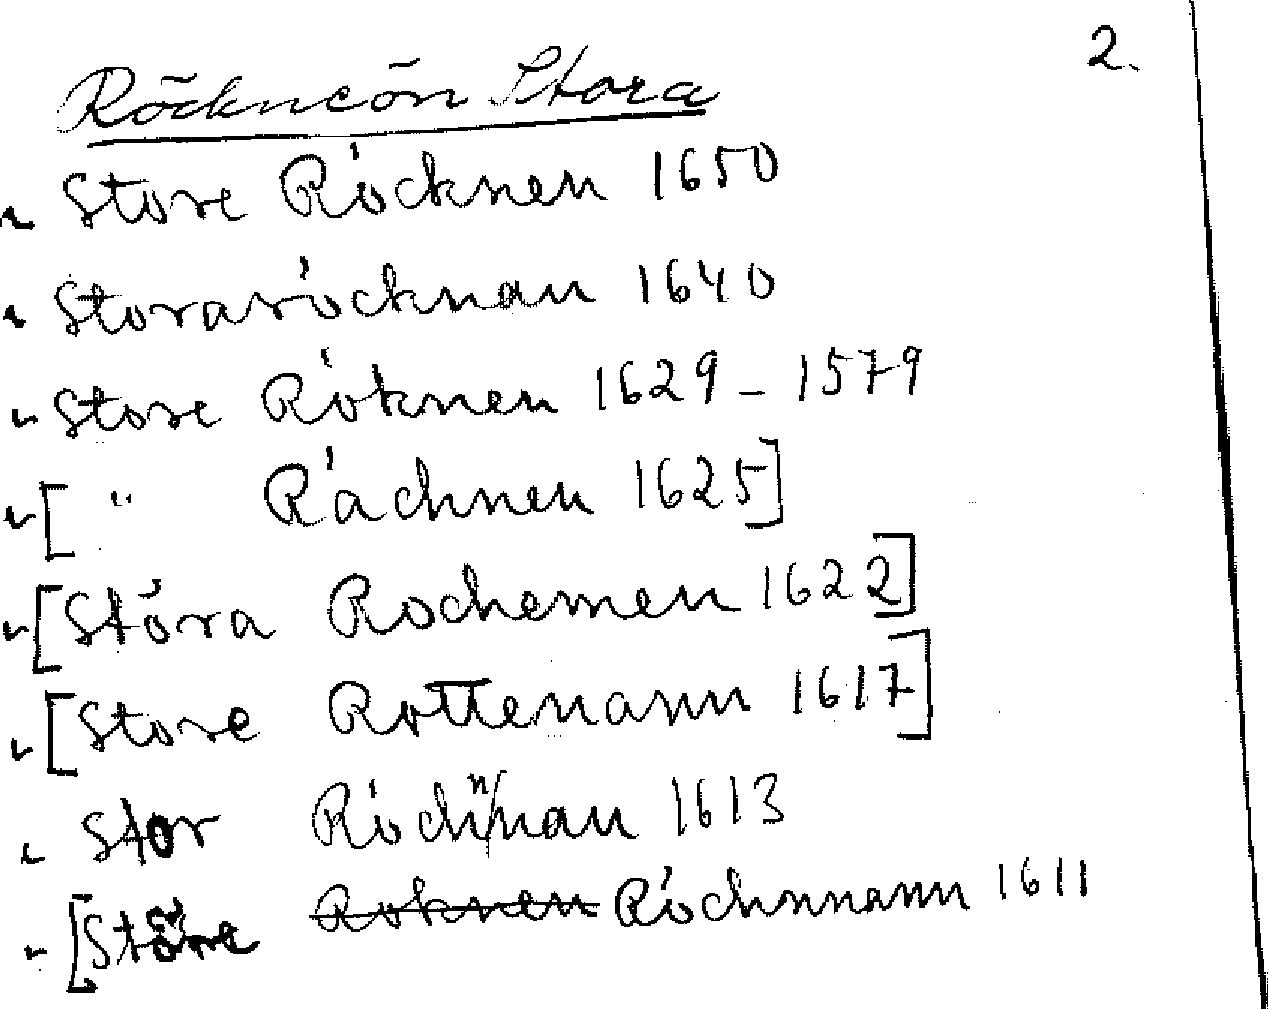 2.
Röckneön Stora
" Store Röcknen 1650
" Storaröcknan 1640
" Store Röknen 1629 - 1579
" [ " Råchnen 1625]
" [Stóra Rochemen 1622]
" [Store Rottenann 1617]
" Stor Röchnnan 1613
" [Störe Röchnnann 1611